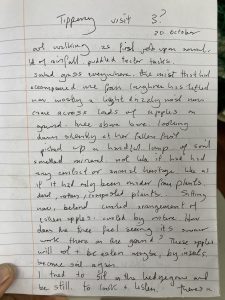 Tipperary visit 3?
20 October
out walking as first job upon arrival.
lot of rainfall. puddled tractor tracks.
soaked grass everywhere. the mist that had
accompanied me from has lifted
now wearing a light drizzly mist now
come across loads of apples on
ground. tree above bare. looking
down silently at her fallen fruit
picked up a handful lump of soil
smelled mineral. not like it had had
any contact or animal heritage. like as
if it had only been made from plants.
dead, rotten, composted plants. Sitting
now, behind curated arrangement of
fallen apples. curated by nature. How
does the tree feel seeing its summer
work there on the ground? These apples
will rot + be eaten maybe, by insects,
and
I tried to sit in the hedgerow and
be still. to look + listen. there's a